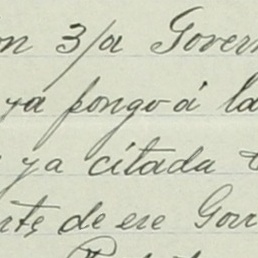 on 3/a Govern
ya pongo á la
ya citada
rte de ese Gov